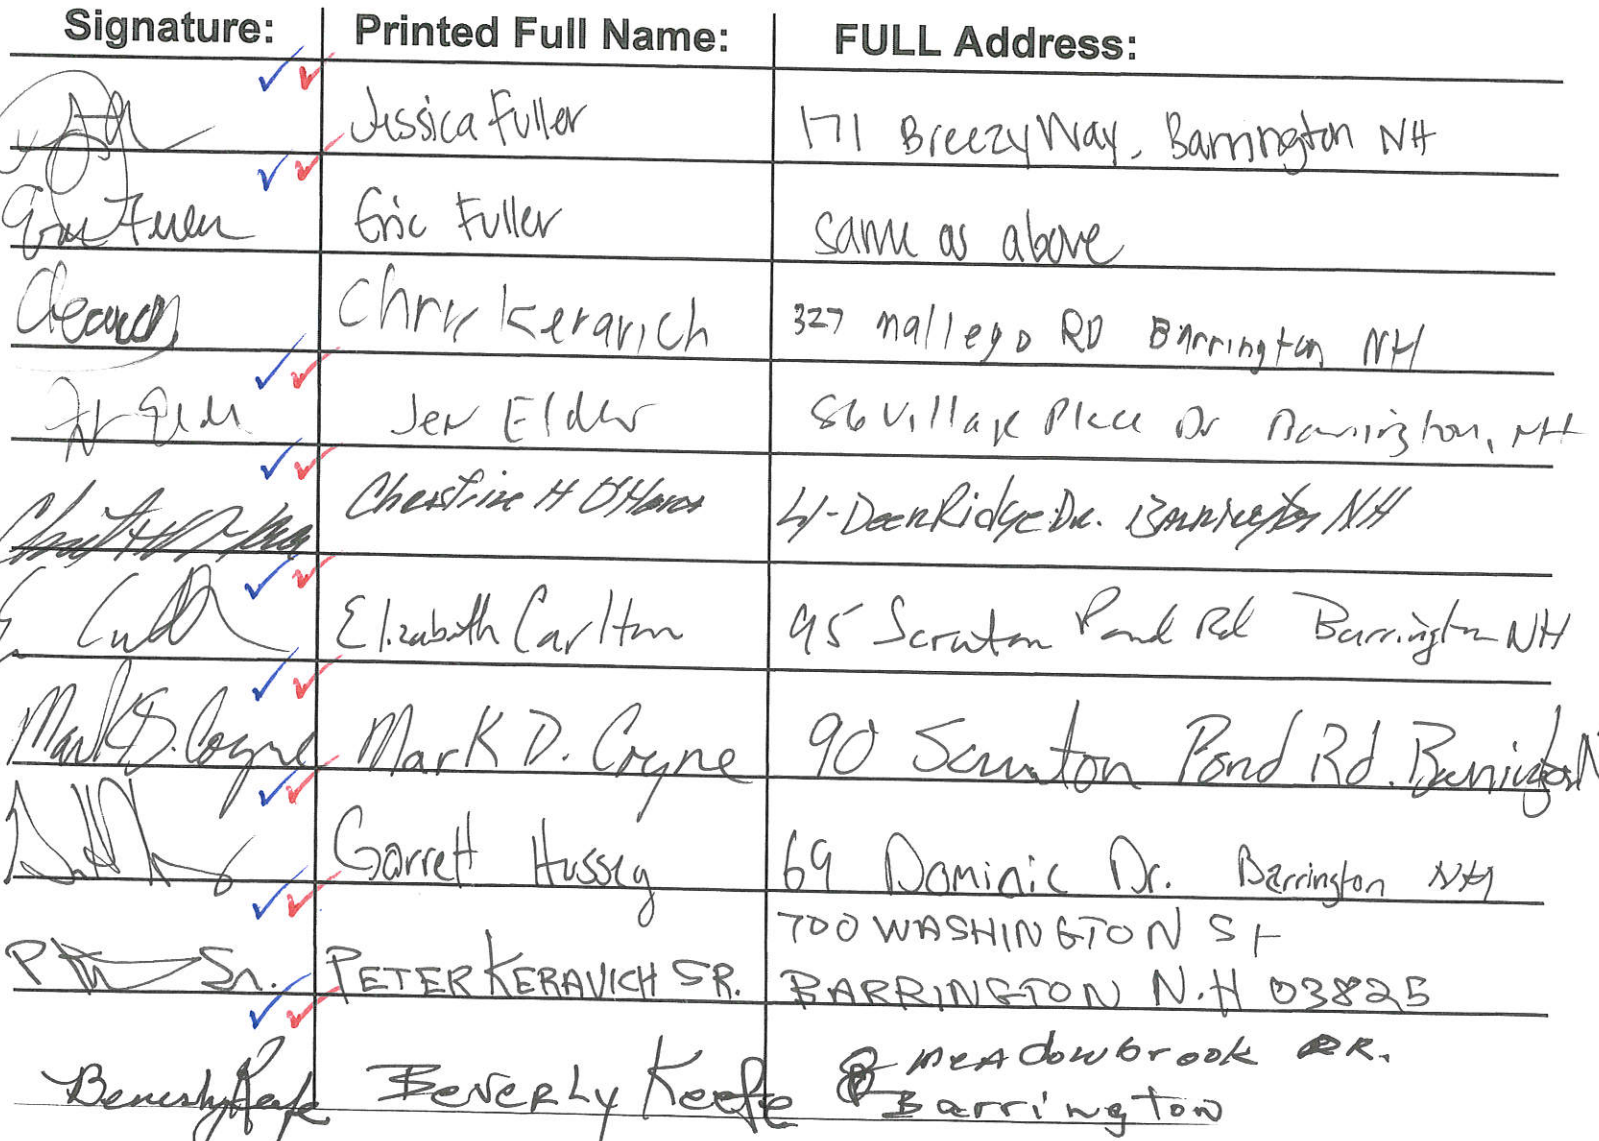 Signature: Printed Full Name: FULL Address:
Jessica Fuller 171 Breezy Way, Barrington NH
Eric Fuller Eric Fuller same as above
Chris Keravich 327 Mallego RD Barrington NH
Jen Elder Jen Elder 86 Village Place Dr Barrington, NH
Christine H O'Hara 41-Deer Ridge Dr. Barrington NH
E Elizabeth Carlton 95 Scruton Pond Rd Barrington NH
Mark D. Coyne Mark D. Coyne 90 Scruton Pond Rd. Barrington N
Garrett Hussey 69 Dominic Dr. Barrington NH
700 WASHINGTON St
P Sr. PETER KERAVICH SR. BARRINGTON N.H 03825
8 MEADOWbrook DR.
Beverly Keefe Beverly Keefe Barrington